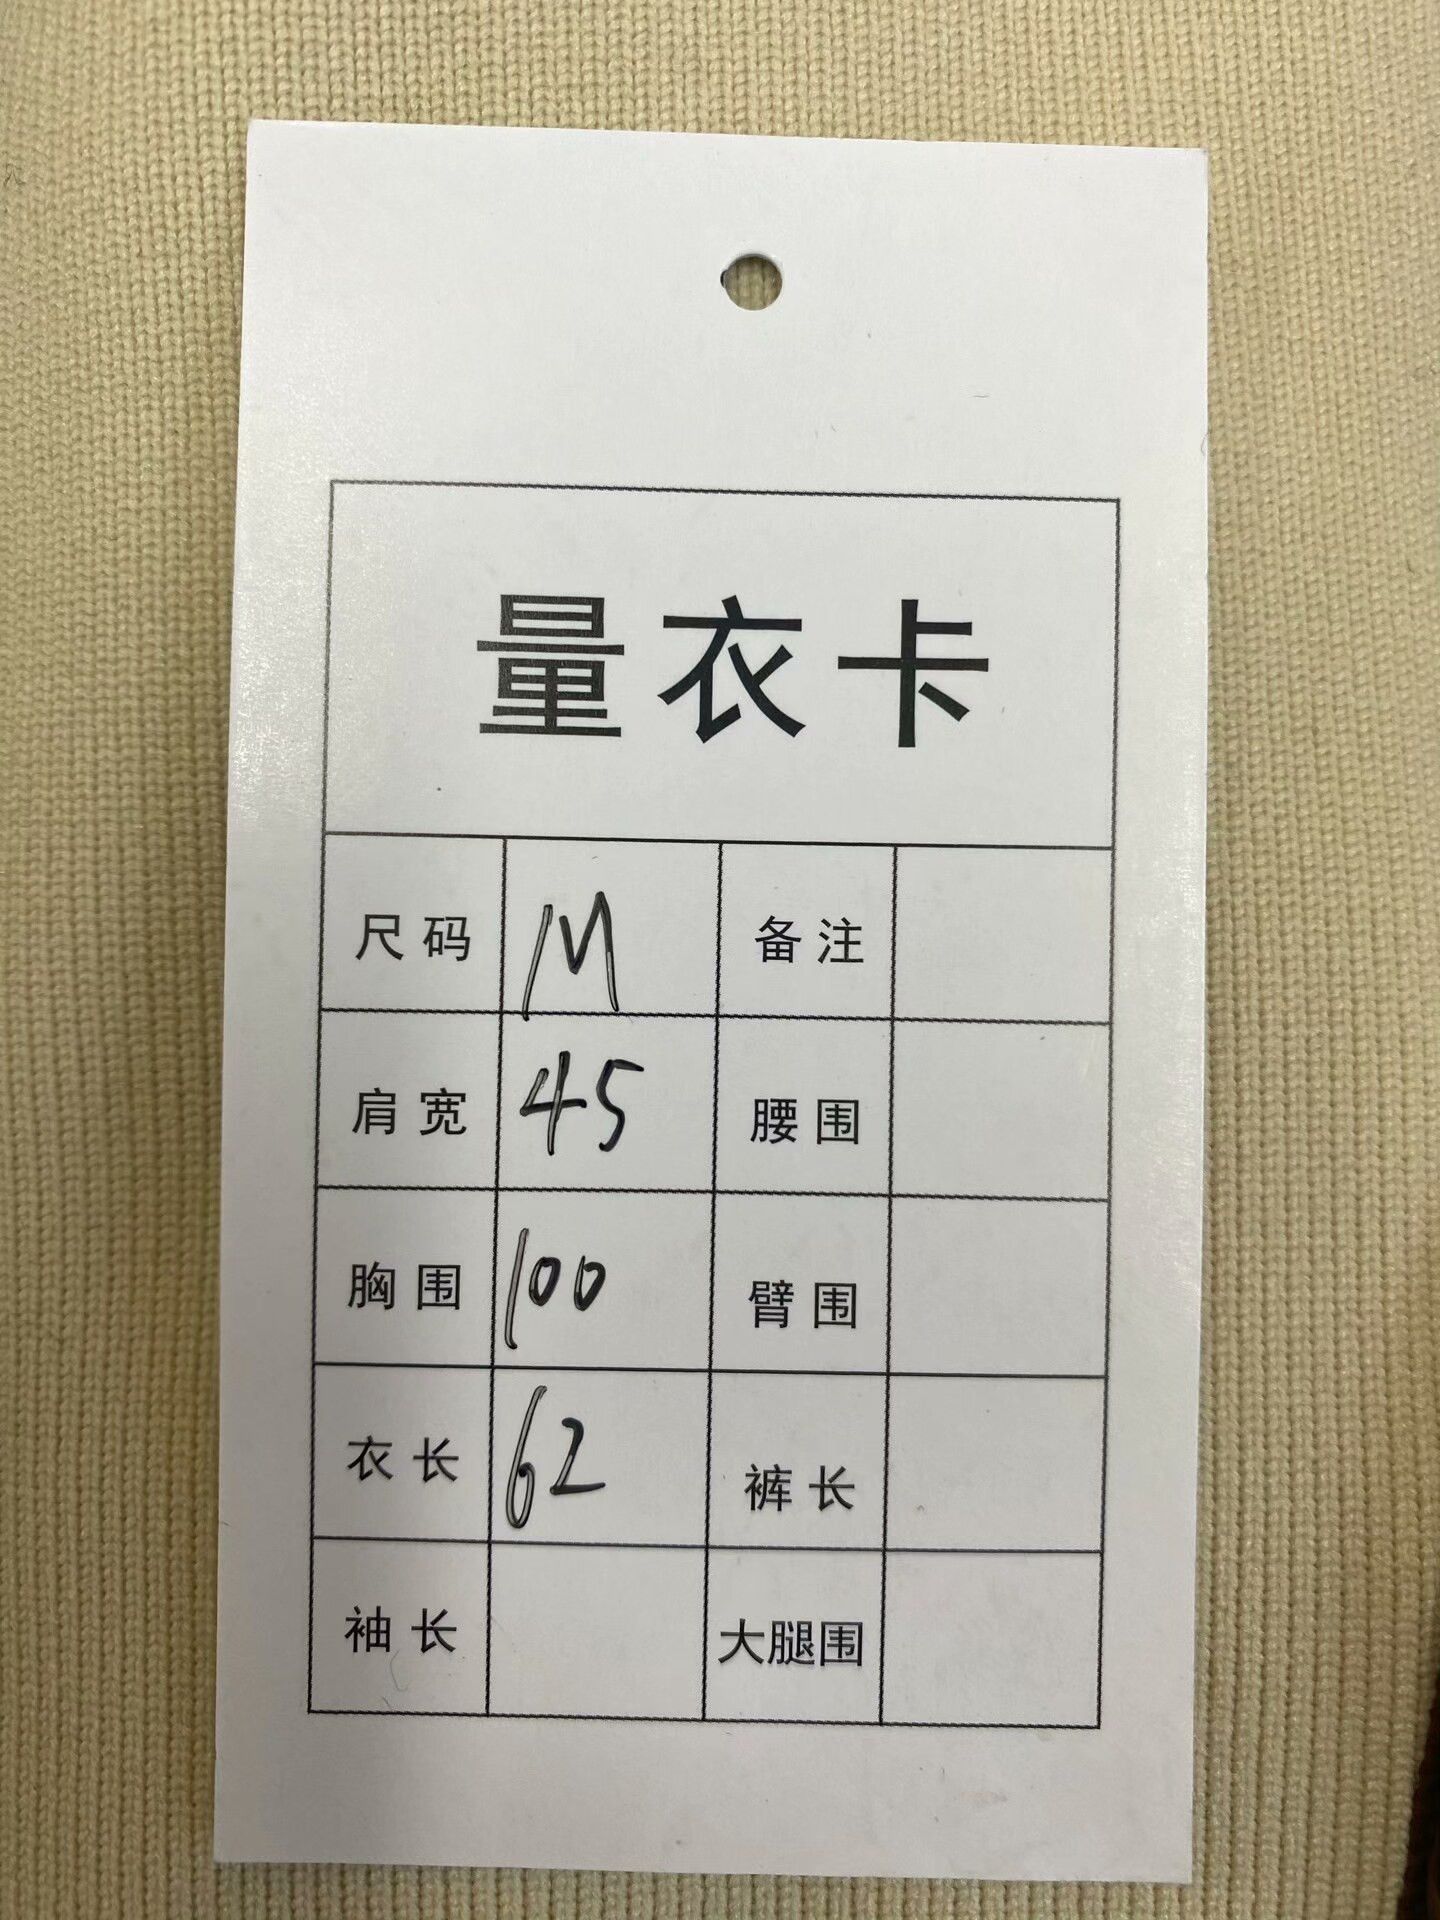 量衣卡
尺码 M 备注
肩宽 45 腰围
胸围 100 臂围
衣长 62 裤长
袖长 大腿围